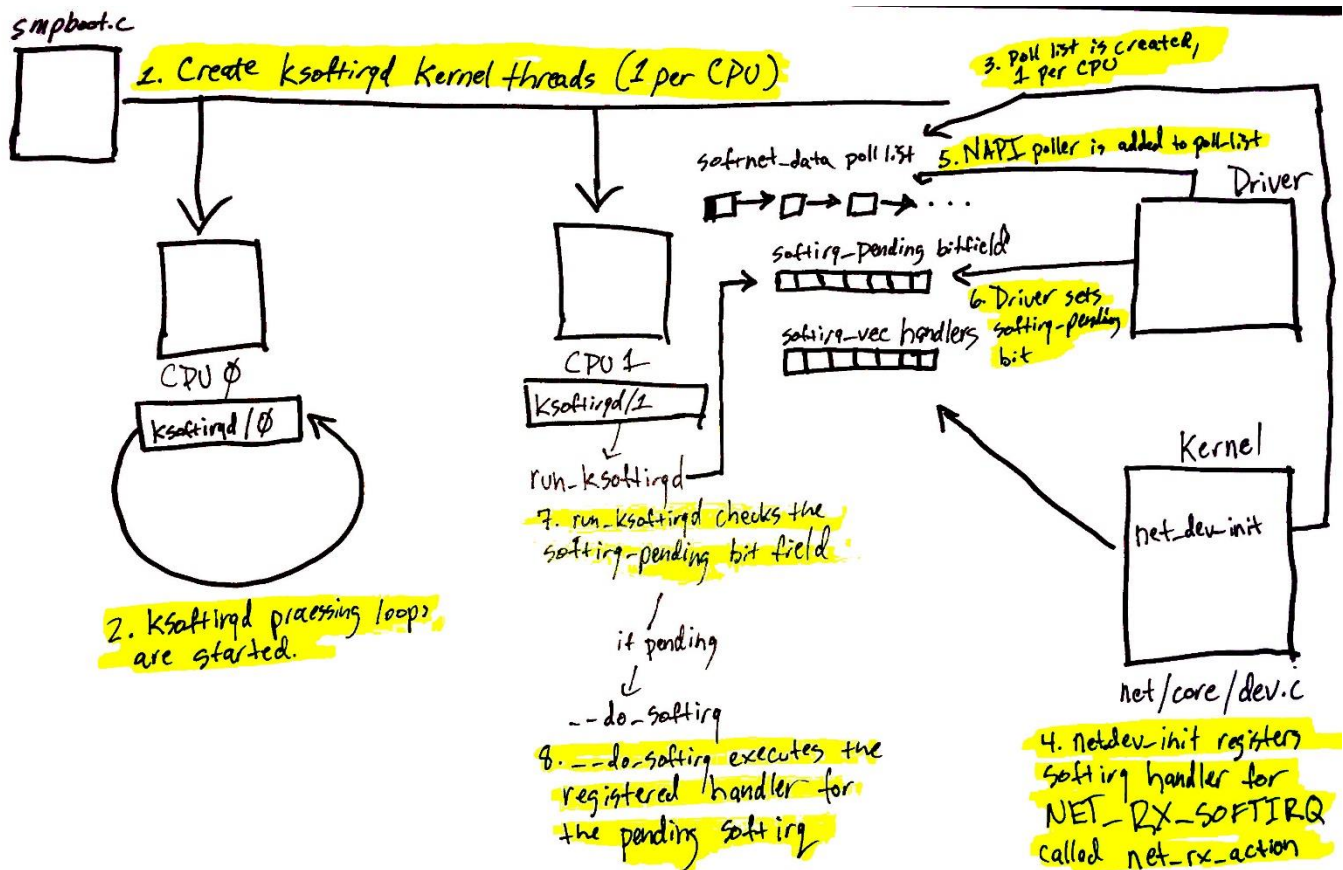 smpboot.c
1. Create ksoftirqd Kernel threads (1 per CPU)
3. Poll list is created,
1 per CPU
softnet_data poll list
5. NAPI poller is added to poll_list
Driver
softirq_pending bitfield
6. Driver sets
softirq-pending
bit
softirq_vec handlers
CPU 0
ksoftirqd/0
2. ksoftirqd processing loops
are started.
CPU 1
ksoftirqd/1
run_ksoftirqd
7. run_ksoftirqd checks the
softirq-pending bit field
if pending
__do_softirq
8. __do_softirq executes the
registered handler for
the pending softirq
Kernel
net_dev_init
net/core/dev.c
4. netdev_init registers
softirq handler for
NET_RX_SOFTIRQ
called net_rx_action